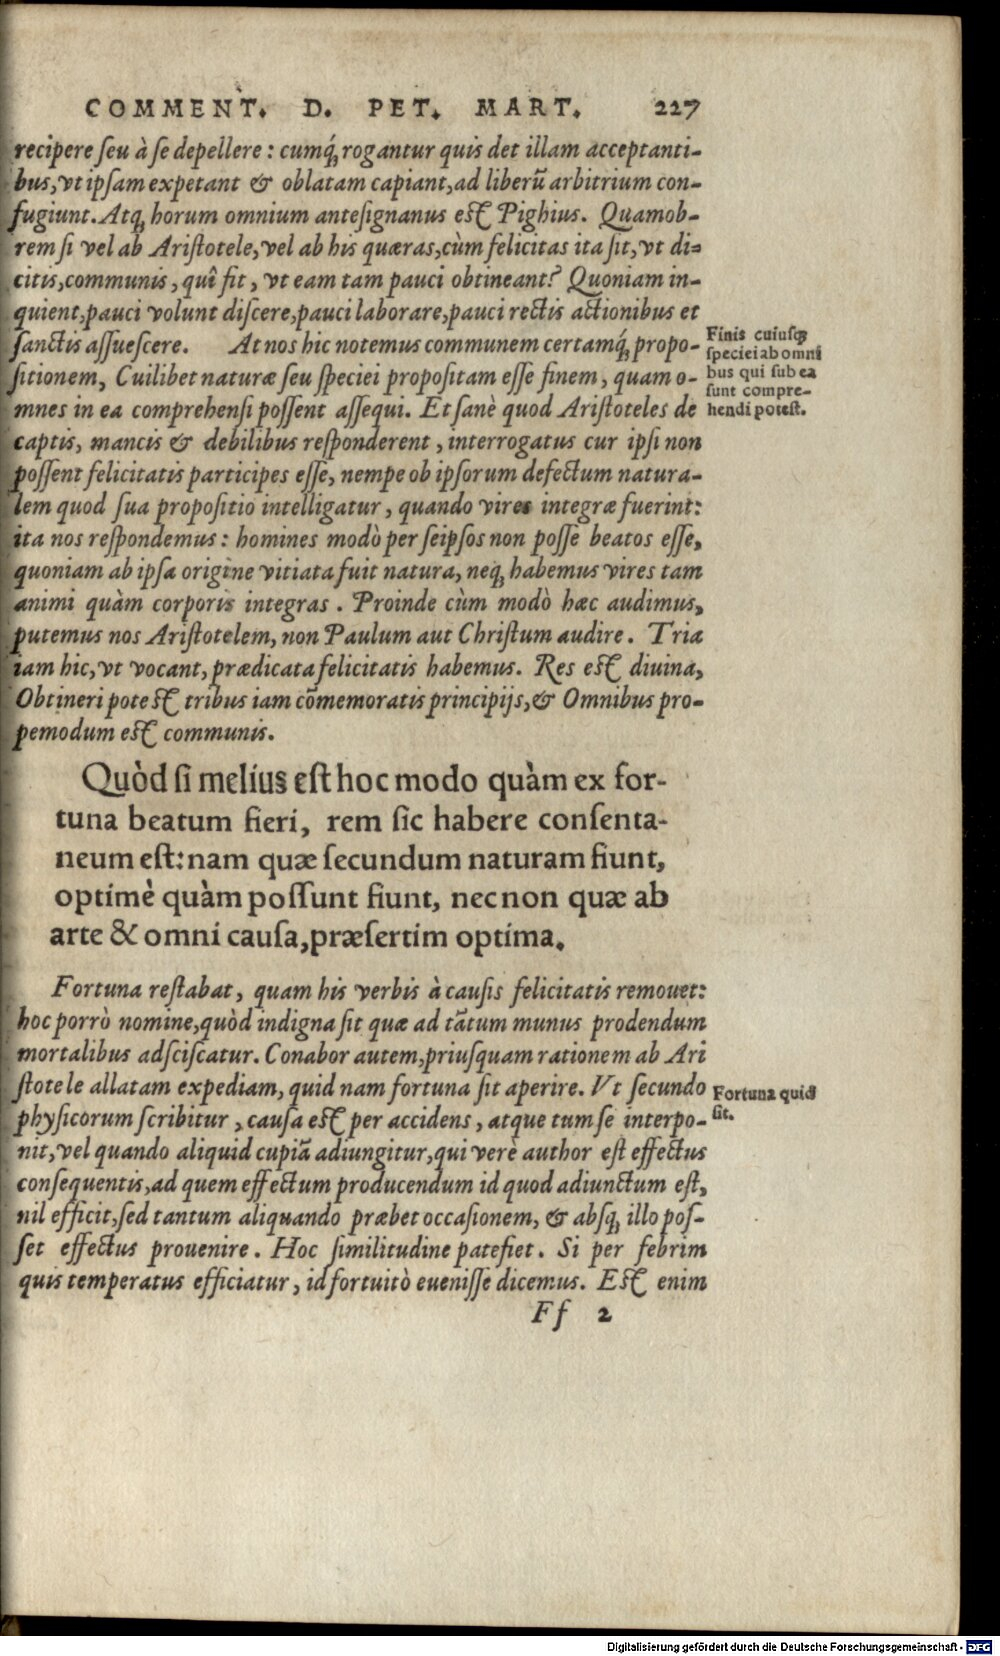 COMMENT. D. PET. MART. 227
recipere ſeu à ſe depellere: cumq́ꝫ rogantur quis det illam acceptanti-
bus, vt ipſam expetant & oblatam capiant, ad liberũ arbitrium con-
fugiunt. Atqꝫ horum omnium anteſignanus eſt Pighius. Quamob-
rem ſi vel ab Ariſtotele, vel ab his quæras, cùm felicitas ita ſit, vt di-
citis, communis, quî fit, vt eam tam pauci obtineant? Quoniam in-
quient, pauci volunt diſcere, pauci laborare, pauci rectis actionibus et
ſanctis aſſueſcere. At nos hic notemus communem certamq́ꝫ propo-
ſitionem, Cuilibet naturæ ſeu ſpeciei propoſitam eſſe finem, quam o-
mnes in ea comprehenſi poſſent aſſequi. Et ſanè quod Ariſtoteles de
captis, mancis & debilibus reſponderent, interrogatus cur ipſi non
poſſent felicitatis participes eſſe, nempe ob ipſorum defectum natura-
lem quod ſua propoſitio intelligatur, quando vires integræ fuerint:
ita nos reſpondemus: homines modò per ſeipſos non poſſe beatos eſſe,
quoniam ab ipſa origine vitiata fuit natura, neqꝫ habemus vires tam
animi quàm corporis integras. Proinde cùm modò hæc audimus,
putemus nos Ariſtotelem, non Paulum aut Chriſtum audire. Tria
iam hic, vt vocant, prædicata felicitatis habemus. Res eſt diuina,
Obtineri poteſt tribus iam cõmemoratis principijs, & Omnibus pro-
pemodum eſt communis.
Finis cuiuſqꝫ
ſpeciei ab omni
bus qui ſub ea
ſunt compre-
hendi poteſt.
Quòd ſi melius eſt hoc modo quàm ex for-
tuna beatum fieri, rem ſic habere conſenta-
neum eſt: nam quæ ſecundum naturam fiunt,
optimè quàm poſſunt fiunt, nec non quæ ab
arte & omni cauſa, præſertim optima.
Fortuna reſtabat, quam his verbis à cauſis felicitatis remouet:
hoc porrò nomine, quòd indigna ſit quæ ad tãtum munus prodendum
mortalibus adſciſcatur. Conabor autem, priuſquam rationem ab Ari
ſtotele allatam expediam, quid nam fortuna ſit aperire. Vt ſecundo
phyſicorum ſcribitur, cauſa eſt per accidens, atque tum ſe interpo-
nit, vel quando aliquid cupiã adiungitur, qui verè author est effectus
conſequentis, ad quem effectum producendum id quod adiunctum eſt,
nil efficit, ſed tantum aliquando præbet occaſionem, & abſqꝫ illo poſ-
ſet effectus prouenire. Hoc ſimilitudine patefiet. Si per febrim
quis temperatus efficiatur, id fortuitò eueniſſe dicemus. Eſt enim
Fortuna quid
ſit.
Ff 2
Digitalisierung gefördert durch die Deutsche Forschungsgemeinschaft - DFG